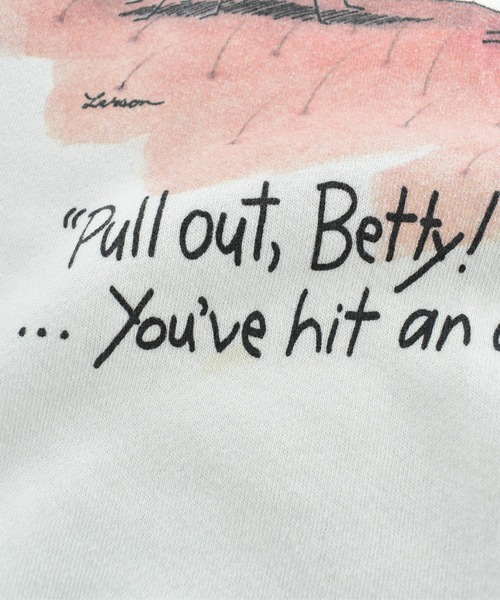 Larson
"Pull out, Betty!
... You've hit an